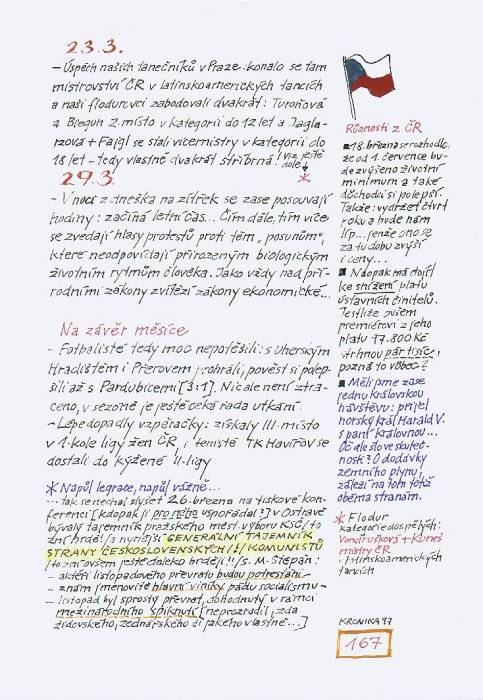 23.3.
– Úspěch našich tanečníků v Praze: konalo se tam
mistrovství ČR v latinskoamerických tancích
a naši flodurovci zabodovali dvakrát: Turoňová
a Biegun 2. místo v kategorii do 12 let a Jagla-
rzová + Fajgl se stali vicemistry v kategorii do
18 let – tedy vlastně dvakrát stříbrná! viz ještě
dole ↓
*
29.3.
– V noci z dneška na zítřek se zase posouvají
hodiny: začíná letní čas... Čím dále, tím více
se zvedají hlasy protestů proti těm „posunům",
které neodpovídají přirozeným biologickým
životním rytmům člověka. Jako vždy nad pří-
rodními zákony zvítězí zákony ekonomické...
Na závěr měsíce
– Fotbalisté tedy moc nepotěšili: s Uherským
Hradištěm i Přerovem prohráli, pověst si polep-
šili až s Pardubicemi [3:1]. Nic ale není ztra-
ceno, v sezoně je ještě celá řada utkání.
– Lépe dopadly vzpěračky: získaly III. místo
v 1. kole ligy žen ČR, i tenisté TK Havířov se
dostali do kýžené II. ligy
* Napůl legrace, napůl vážně...
... tak se nechal slyšet 26. března na tiskové kon-
ferenci [kdopak ji pro něho uspořádal?] v Ostravě
bývalý tajemník pražského měst. výboru KSČ /to
zní hrdě!/ a nynější GENERÁLNÍ TAJEMNÍK
STRANY ČESKOSLOVENSKÝCH /!/ KOMUNISTŮ
/to zní ovšem ještě daleko hrději!!/ s. M. Štěpán:
– aktéři listopadového převratu budou potrestáni –
– znám jmenovitě hlavní viníky pádu socialismu –
– listopad byl sprostý převrat, dohodnutý v rámci
mezinárodního spiknutí [neprozradil, zda
židovského, zednářského či jakého vlastně...]
Různosti z ČR
■ 18. března se rozhodlo,
že od 1. července bu-
de zvýšeno životní
minimum a také
důchodci si polepší.
Takže: vydržet čtvrt
roku a bude nám
líp... jenže ono se
za tu dobu zvýší
i ceny...
■ Naopak má dojít
ke snížení platu
ústavních činitelů.
Jestliže ovšem
premiérovi z jeho
platu 97.800 Kč
strhnou pár tisíc,
pozná to vůbec?
■ Měli jsme zase
jednu královskou
návštěvu: přijel
norský král Harald V.
s paní královnou...
Oč ale šlo ve skuteč-
nosti? O dodávky
zemního plynu,
záleží na tom totiž
oběma stranám.
* Flodur
kategorie dospělých:
Vondrušková + Kuneš
mistry ČR
v latinskoamerických
tancích
KRONIKA 97
167